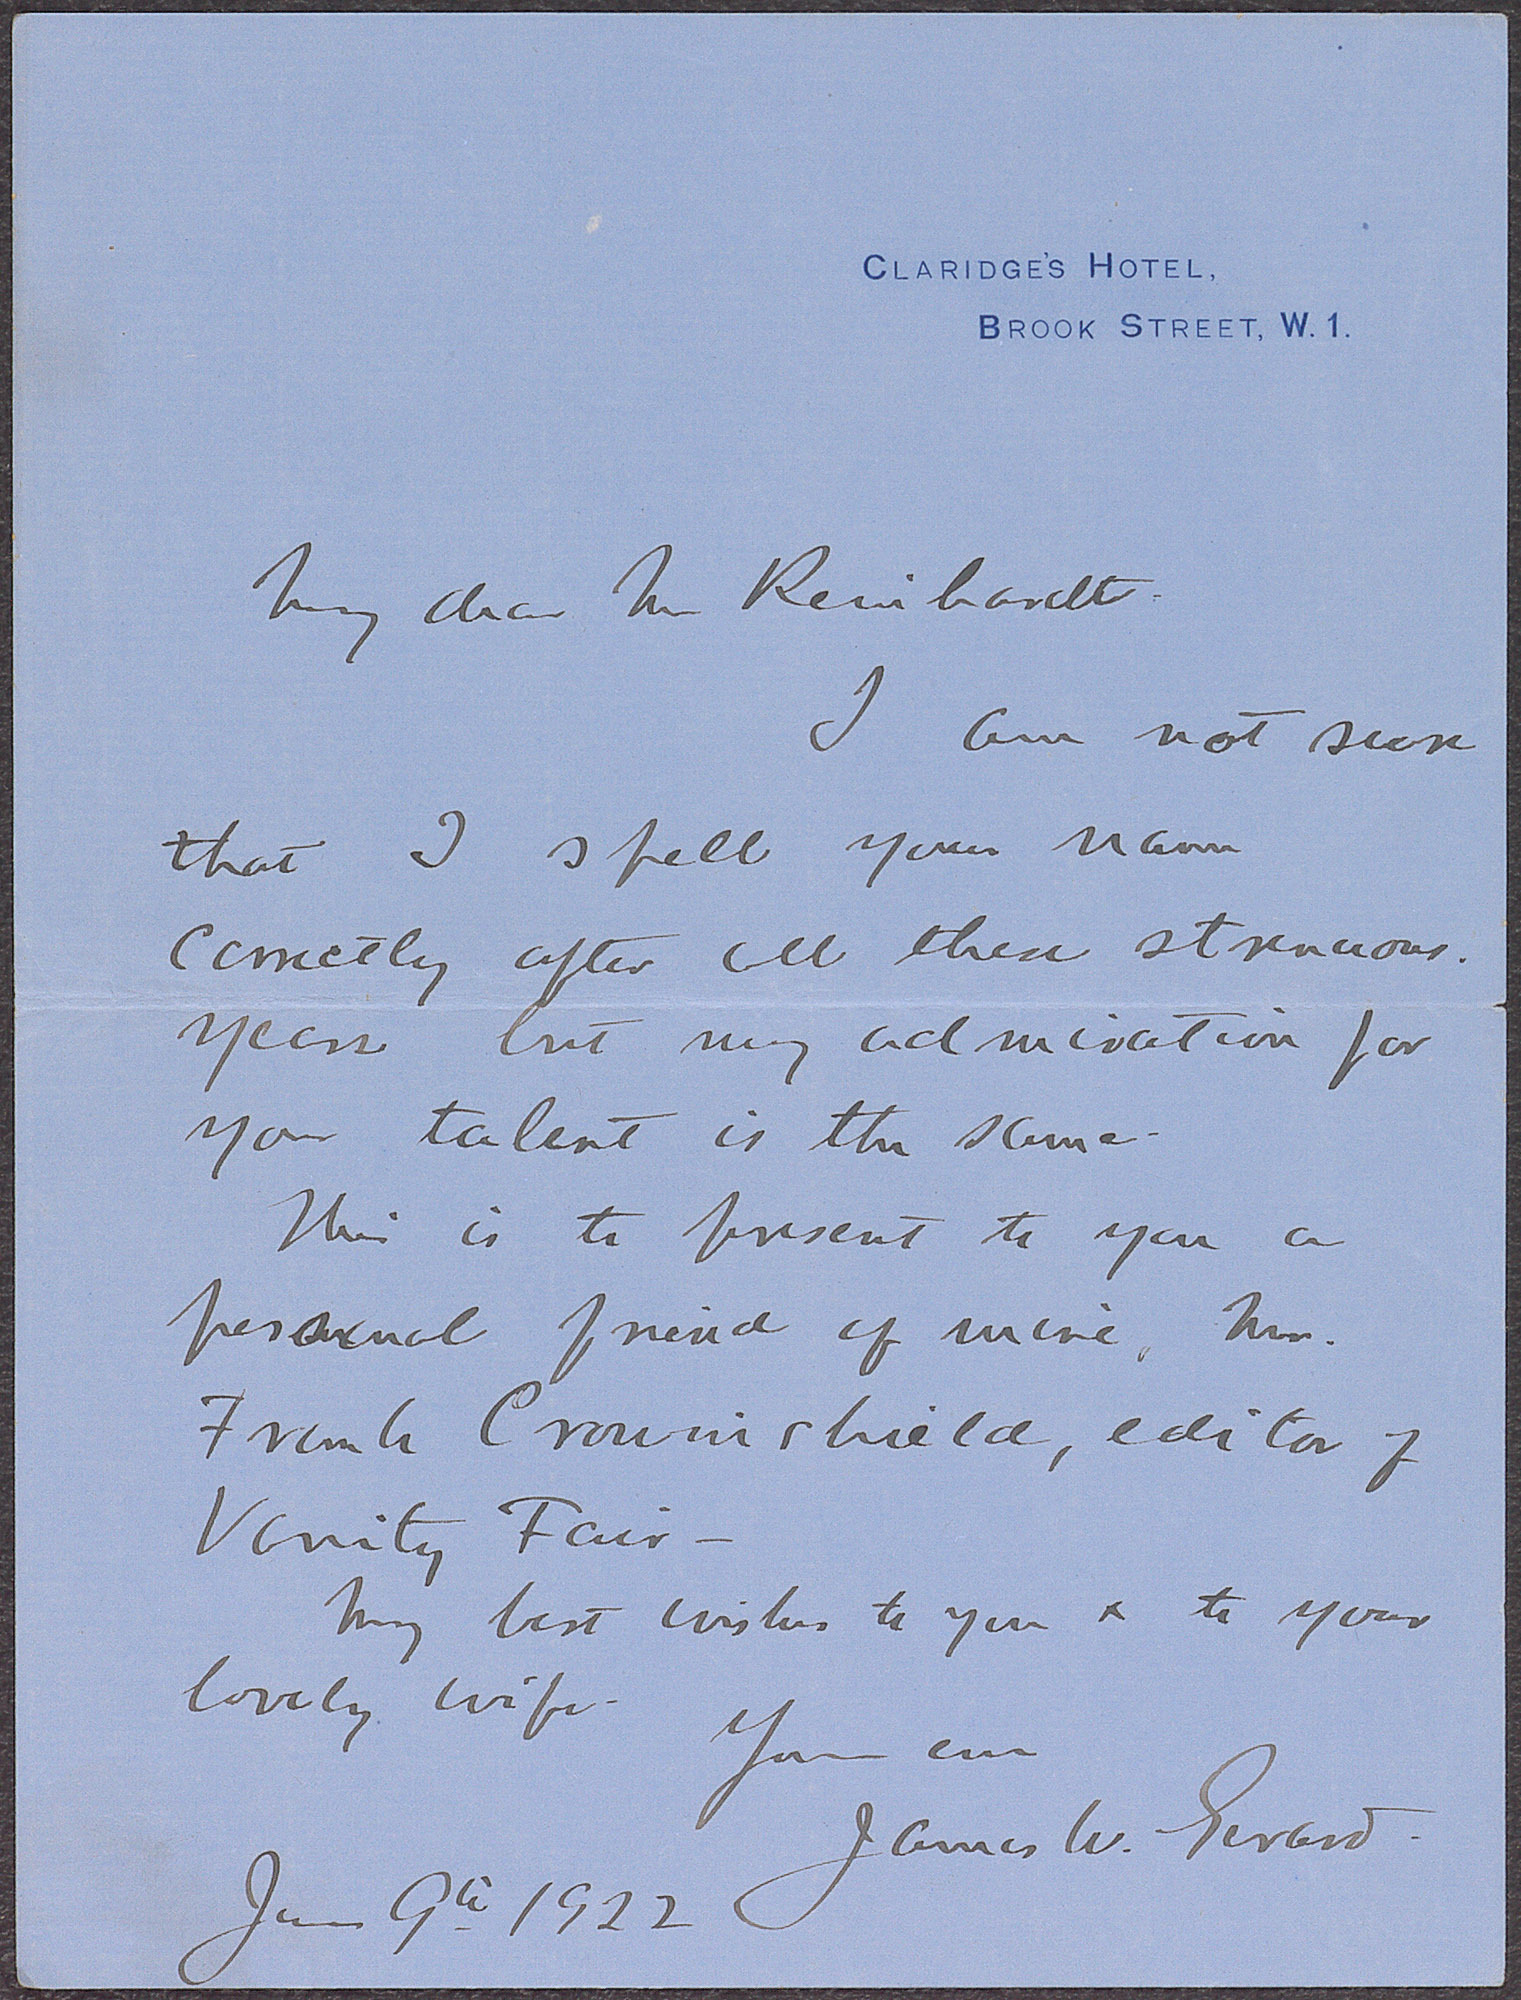 CLARIDGE'S HOTEL,
BROOK STREET, W. 1.
My dear Mr Reinhardt.
I am not sure
that I spell your name
correctly after all these strenuous
years but my admiration for
your talent is the same -
This is to present to you a
personal friend of mine, Mr.
Frank Crowninshield, editor of
Vanity Fair -
My best wishes to you & to your
lovely wife -
Yours ever
James W. Gerard.
June 9th 1922